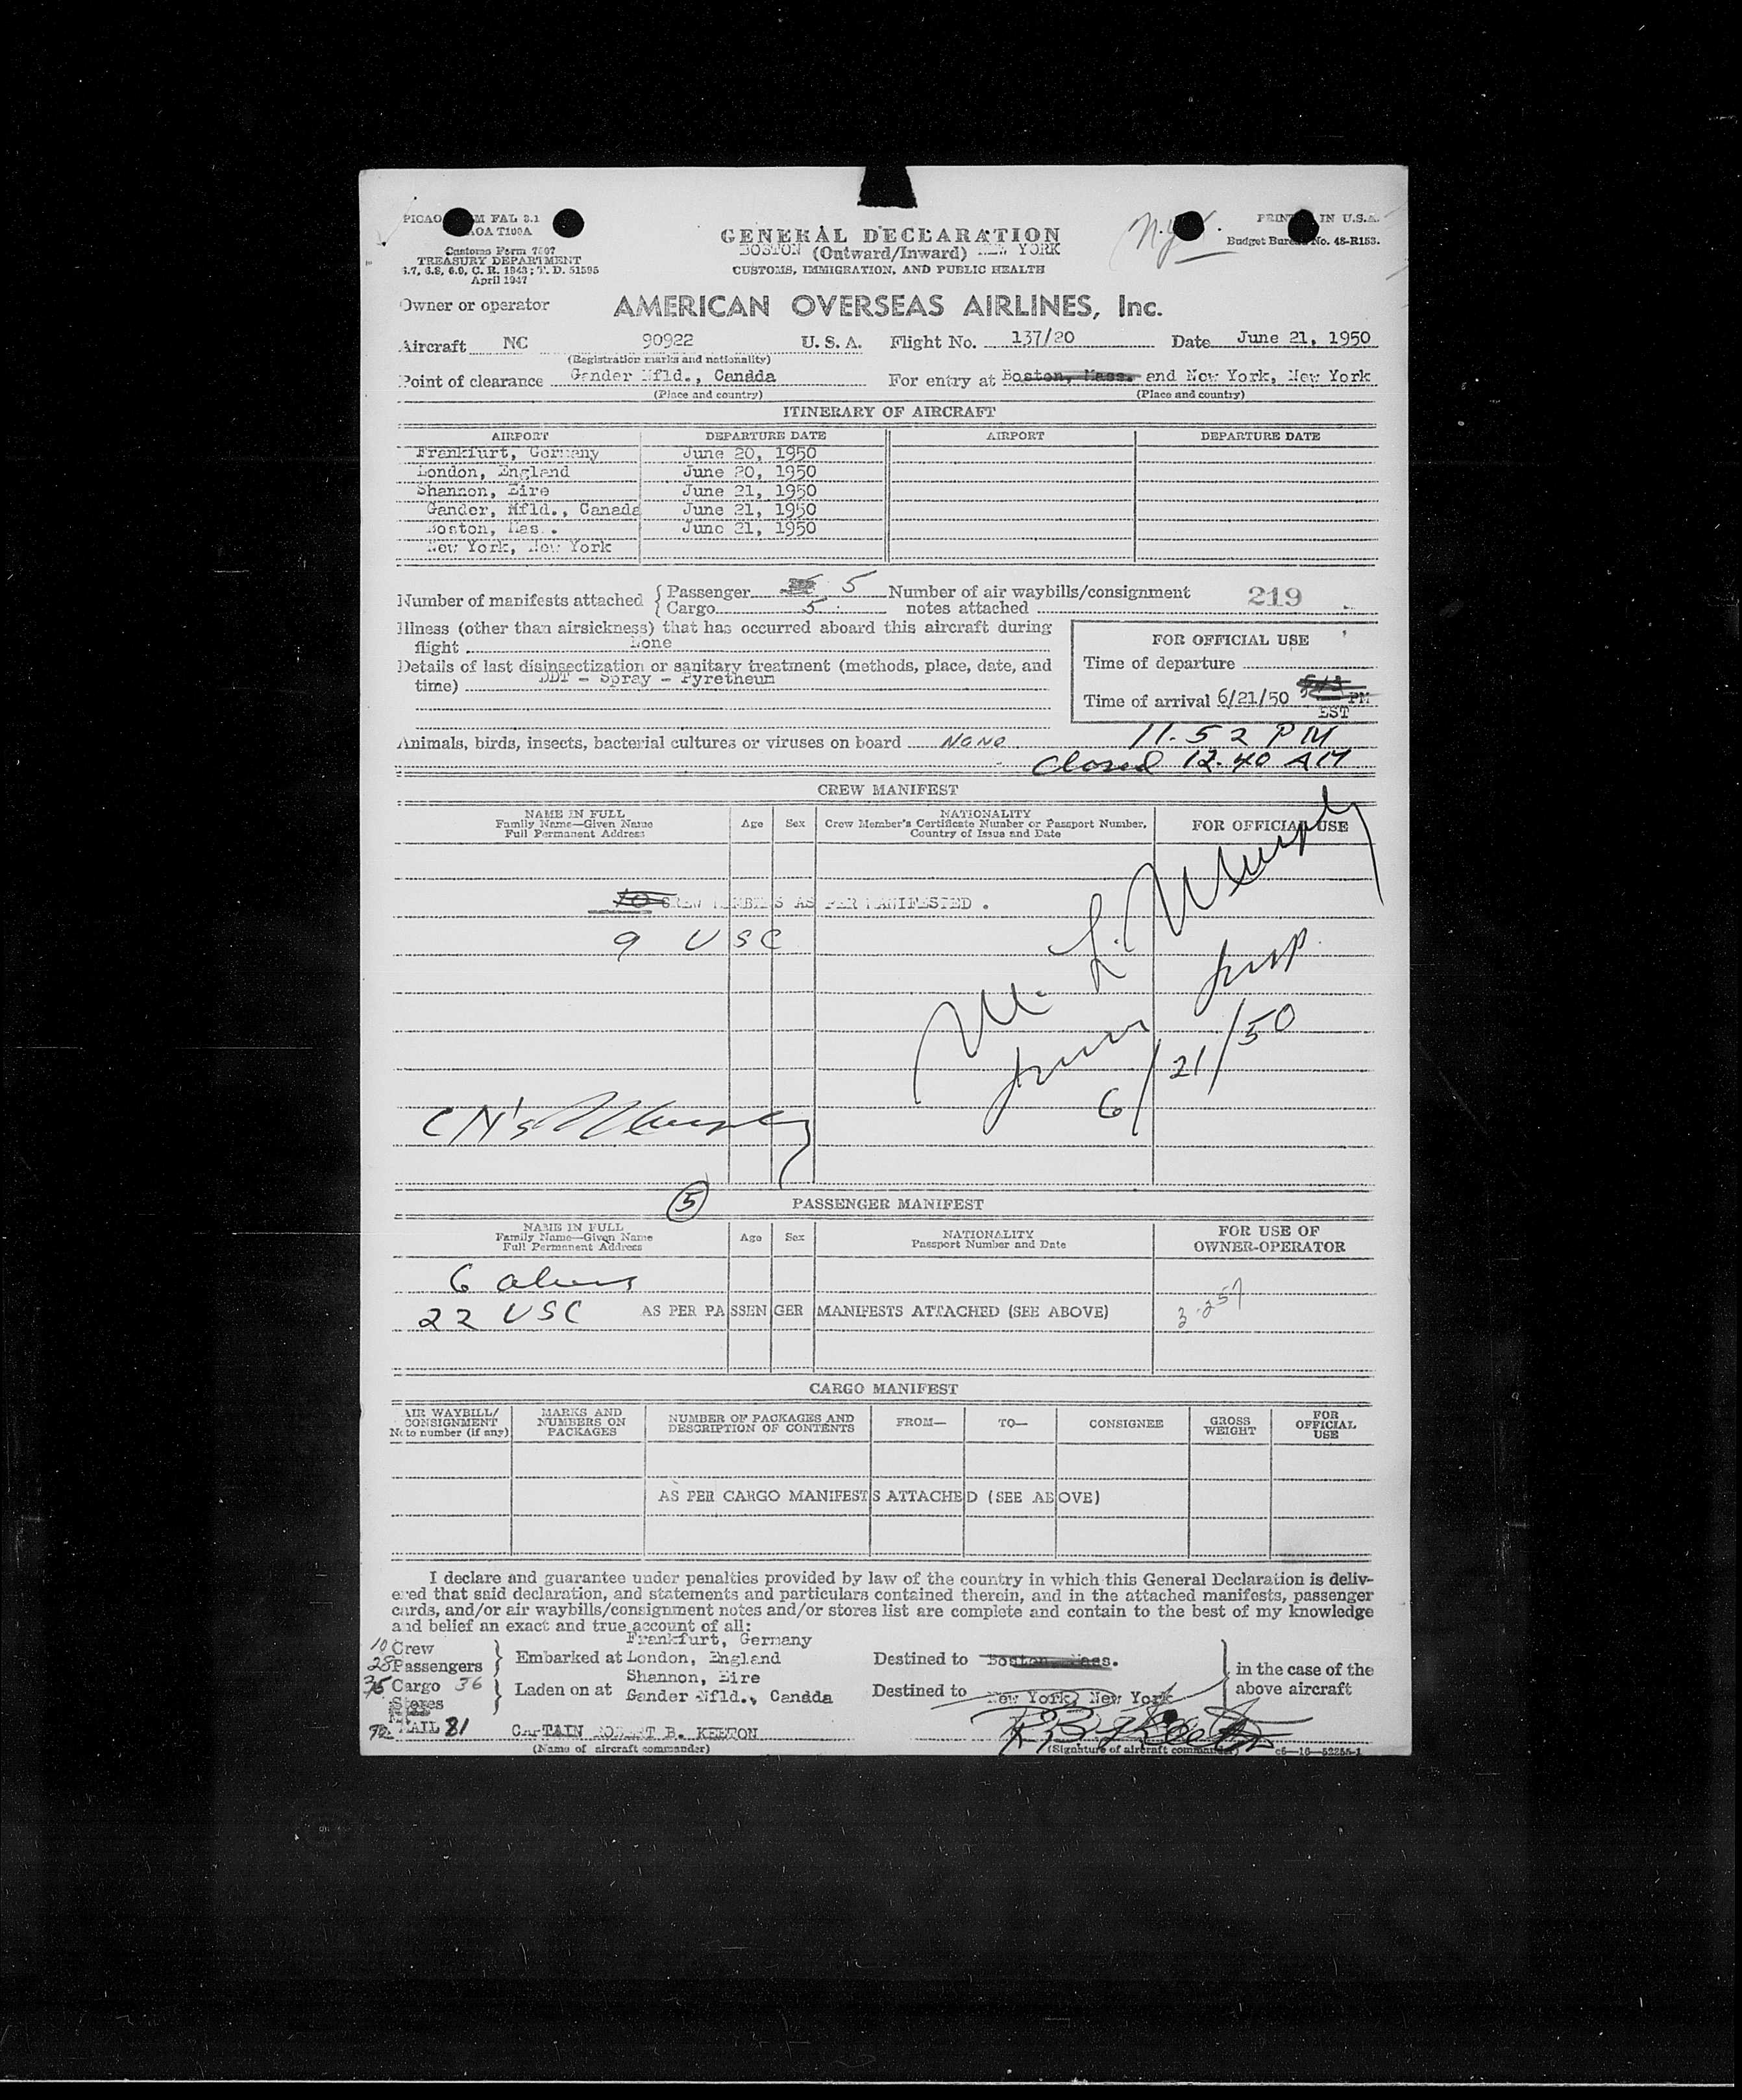 GENERAL DECLARATION
BOSTON (Outward/Inward) NEW YORK
CUSTOMS, IMMIGRATION, AND PUBLIC HEALTH
N.Y.
PRINTED IN U.S.A.
Budget Bureau No. 48-R153.
PICAO FAL 2.1
AOA T100A
Customs Form 7507
TREASURY DEPARTMENT
6.7, 6.8, 6.9, C. R. 1943; T. D. 51595
April 1947
Owner or operator AMERICAN OVERSEAS AIRLINES, Inc.
Aircraft NC 90922 U. S. A. Flight No. 137/20 Date June 21, 1950
(Registration marks and nationality)
Point of clearance Gander Nfld., Canada For entry at Boston, Mass. and New York, New York
(Place and country) (Place and country)
ITINERARY OF AIRCRAFT
AIRPORT DEPARTURE DATE AIRPORT DEPARTURE DATE
Frankfurt, Germany June 20, 1950
London, England June 20, 1950
Shannon, Eire June 21, 1950
Gander, Nfld., Canada June 21, 1950
Boston, Mass. June 21, 1950
New York, New York
Number of manifests attached { Passenger 5 Number of air waybills/consignment 219
{ Cargo 5 notes attached
Illness (other than airsickness) that has occurred aboard this aircraft during
flight None
Details of last disinsectization or sanitary treatment (methods, place, date, and
time) DDT - Spray - Pyretheum
FOR OFFICIAL USE
Time of departure
Time of arrival 6/21/50 PM
EST
11.52 PM
Animals, birds, insects, bacterial cultures or viruses on board None
Closed 12.40 AM
CREW MANIFEST
NAME IN FULL
Family Name—Given Name
Full Permanent Address
Age Sex
NATIONALITY
Crew Member's Certificate Number or Passport Number,
Country of Issue and Date
FOR OFFICIAL USE
10 CREW MEMBERS AS PER MANIFESTED .
9 USC
M. L. Murphy
Imm Insp
6/21/50
CN's Murphy
5
PASSENGER MANIFEST
NAME IN FULL
Family Name—Given Name
Full Permanent Address
Age Sex
NATIONALITY
Passport Number and Date
FOR USE OF
OWNER-OPERATOR
6 aliens
22 USC AS PER PASSENGER MANIFESTS ATTACHED (SEE ABOVE)
CARGO MANIFEST
AIR WAYBILL/
CONSIGNMENT
Note number (if any)
MARKS AND
NUMBERS ON
PACKAGES
NUMBER OF PACKAGES AND
DESCRIPTION OF CONTENTS
FROM— TO— CONSIGNEE
GROSS
WEIGHT
FOR
OFFICIAL
USE
AS PER CARGO MANIFESTS ATTACHED (SEE ABOVE)
I declare and guarantee under penalties provided by law of the country in which this General Declaration is deliv-
ered that said declaration, and statements and particulars contained therein, and in the attached manifests, passenger
cards, and/or air waybills/consignment notes and/or stores list are complete and contain to the best of my knowledge
and belief an exact and true account of all:
Frankfurt, Germany
10 Crew
28 Passengers Embarked at London, England Destined to Boston, Mass. in the case of the
Shannon, Eire
35 Cargo 36 Laden on at Gander Nfld., Canada Destined to New York, New York above aircraft
Stores
MAIL 81 CAPTAIN ROBERT B. KEETON R B Keeton
(Name of aircraft commander) (Signature of aircraft commander) c6—16—52255-1